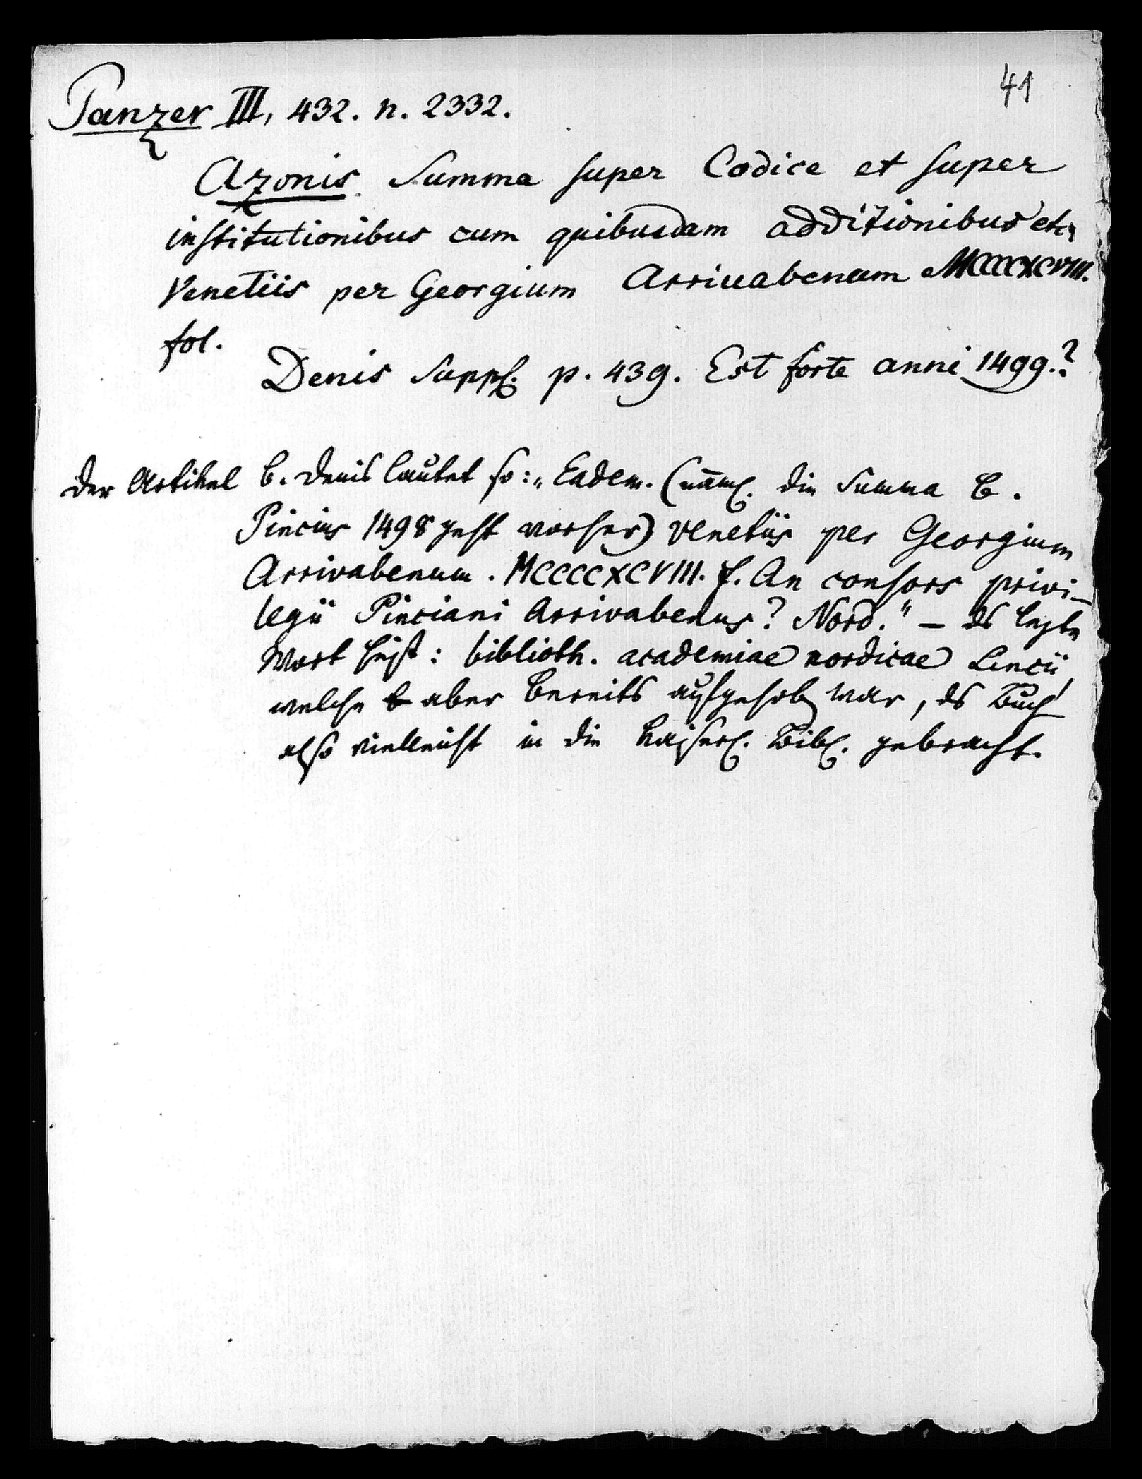 41
Panzer III, 432. n. 2332.
Azonis Summa super Codice et super
institutionibus cum quibusdam additionibus etc.
Venetiis per Georgium Arriuabenum MCCCCXCVIII.
fol.
Denis Suppl. p. 439. Est forte anni 1499.?
Der Artikel b. Denis lautet so: „Eadem. (näml. die Summa b.
Pincius 1498 geht vorher) Venetiis per Georgium
Arrivabenum. MCCCCXCVIII. f. An consors privi-
legii Pinciani Arrivabenus? Nord." – ds lezte
Wort heißt: biblioth. academiae nordicae Lincii,
welche aber bereits aufgehob war, ds Buch
also vielleicht in die Kaiserl. Bibl. gebracht.